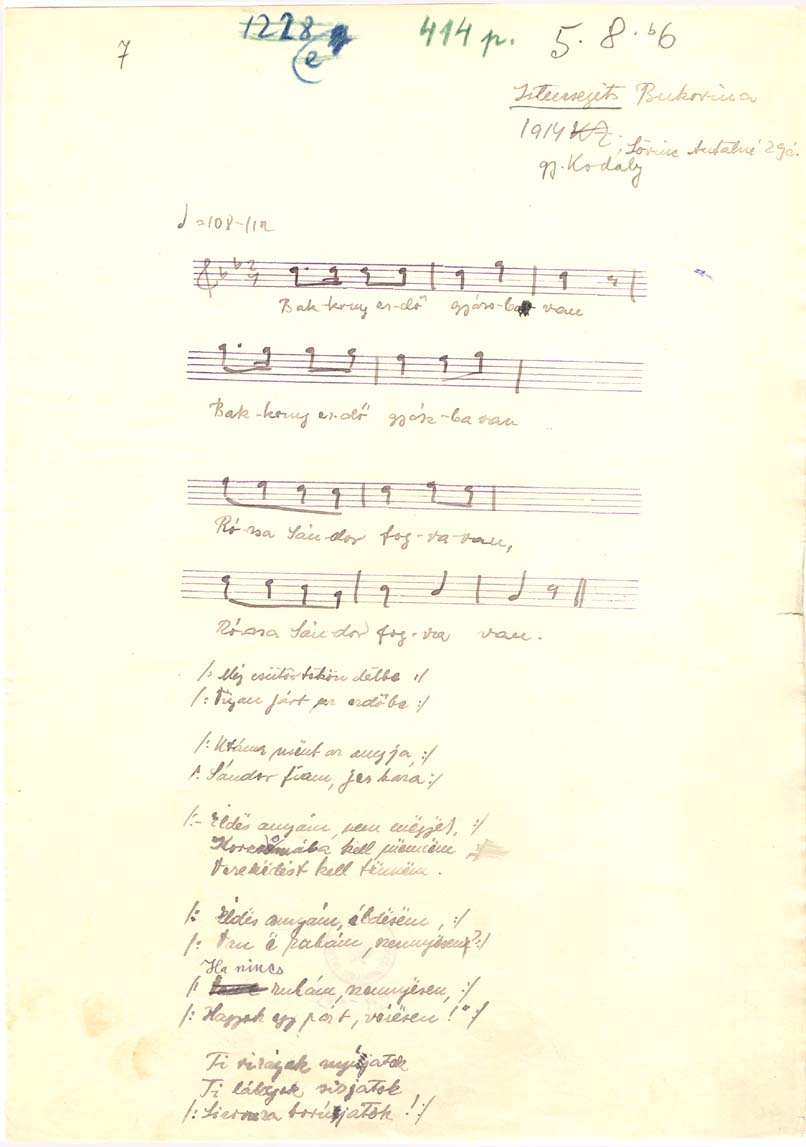 7
1228
e
414 p.
5. 8. b6
Istensegíts Bukovina
1914
Lőrinc Antalné
gy. Kodály
♩ = 108-112
Bak-kony er-dő gyász-ba van
Bak-kony er-dő gyász-ba van
Ró-zsa Sán-dor fog-va van,
Ró-zsa Sán-dor fog-va van.
/: Még csütörtökön délbe :/
/: Vígan járt az erdőbe :/
/: Utána mënt az annyja, :/
/: Sándor fiam, jer haza :/
/: Éldës anyám, nem mëgyek, :/
Korcsomába kell mënnëm
Verekëdést kell tënnëm.
/: Éldës anyám, éldësëm, :/
/: Van ë ruhám, szennyësëm? :/
Ha nincs
/: ruhám, szennyësen, :/
/: Hagyok egy párt, vérësen!" :/
Ti virágok nyíjjatok
Ti lábujjak sírjatok
/: Szomorúra borújjatok! :/